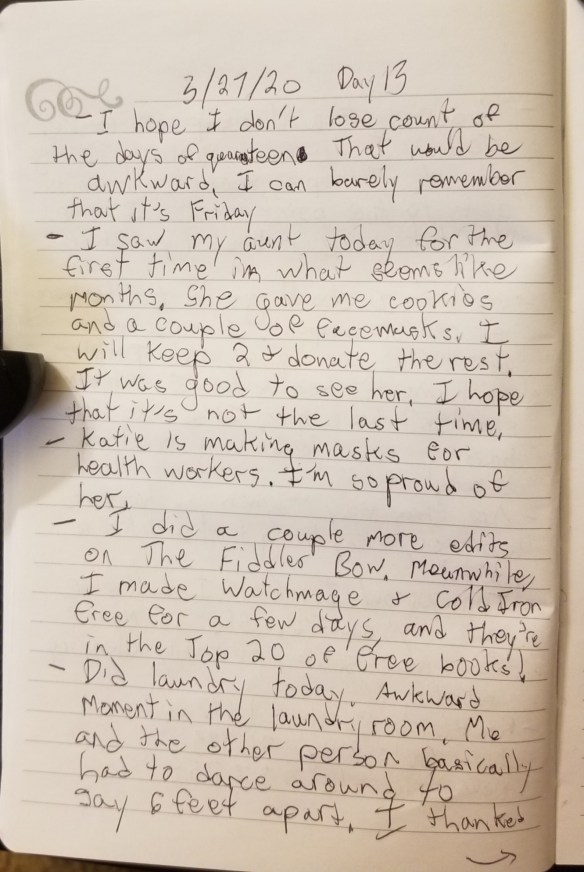 3/27/20 Day 13
- I hope I don't lose count of
the days of quaranteen. That would be
awkward. I can barely remember
that it's Friday
- I saw my aunt today for the
first time in what seems like
months. She gave me cookies
and a couple of facemasks. I
will keep 2 & donate the rest.
It was good to see her. I hope
that it's not the last time.
- Katie is making masks for
health workers. I'm so proud of
her.
- I did a couple more edits
on The Fiddler Bow. Meanwhile,
I made Watchmage & Cold Iron
free for a few days, and they're
in the Top 20 of free books!
- Did laundry today. Awkward
moment in the laundry room. Me
and the other person basically
had to dance around to
say 6 feet apart. I thanked